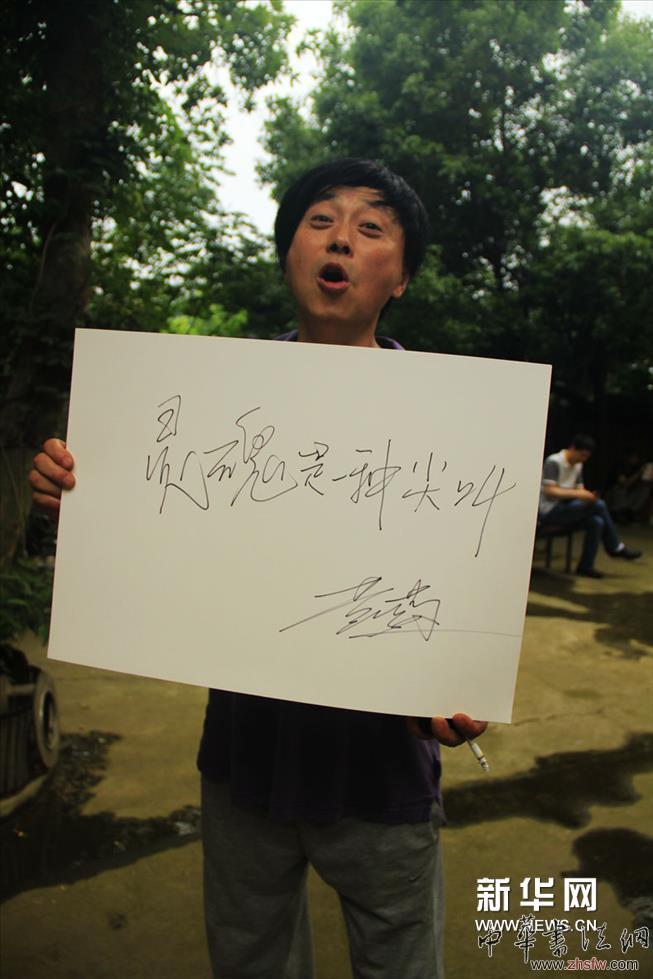 灵魂是一种尖叫
新华网
WWW.NEWS.CN
中華書法網
www.zhsfw.com